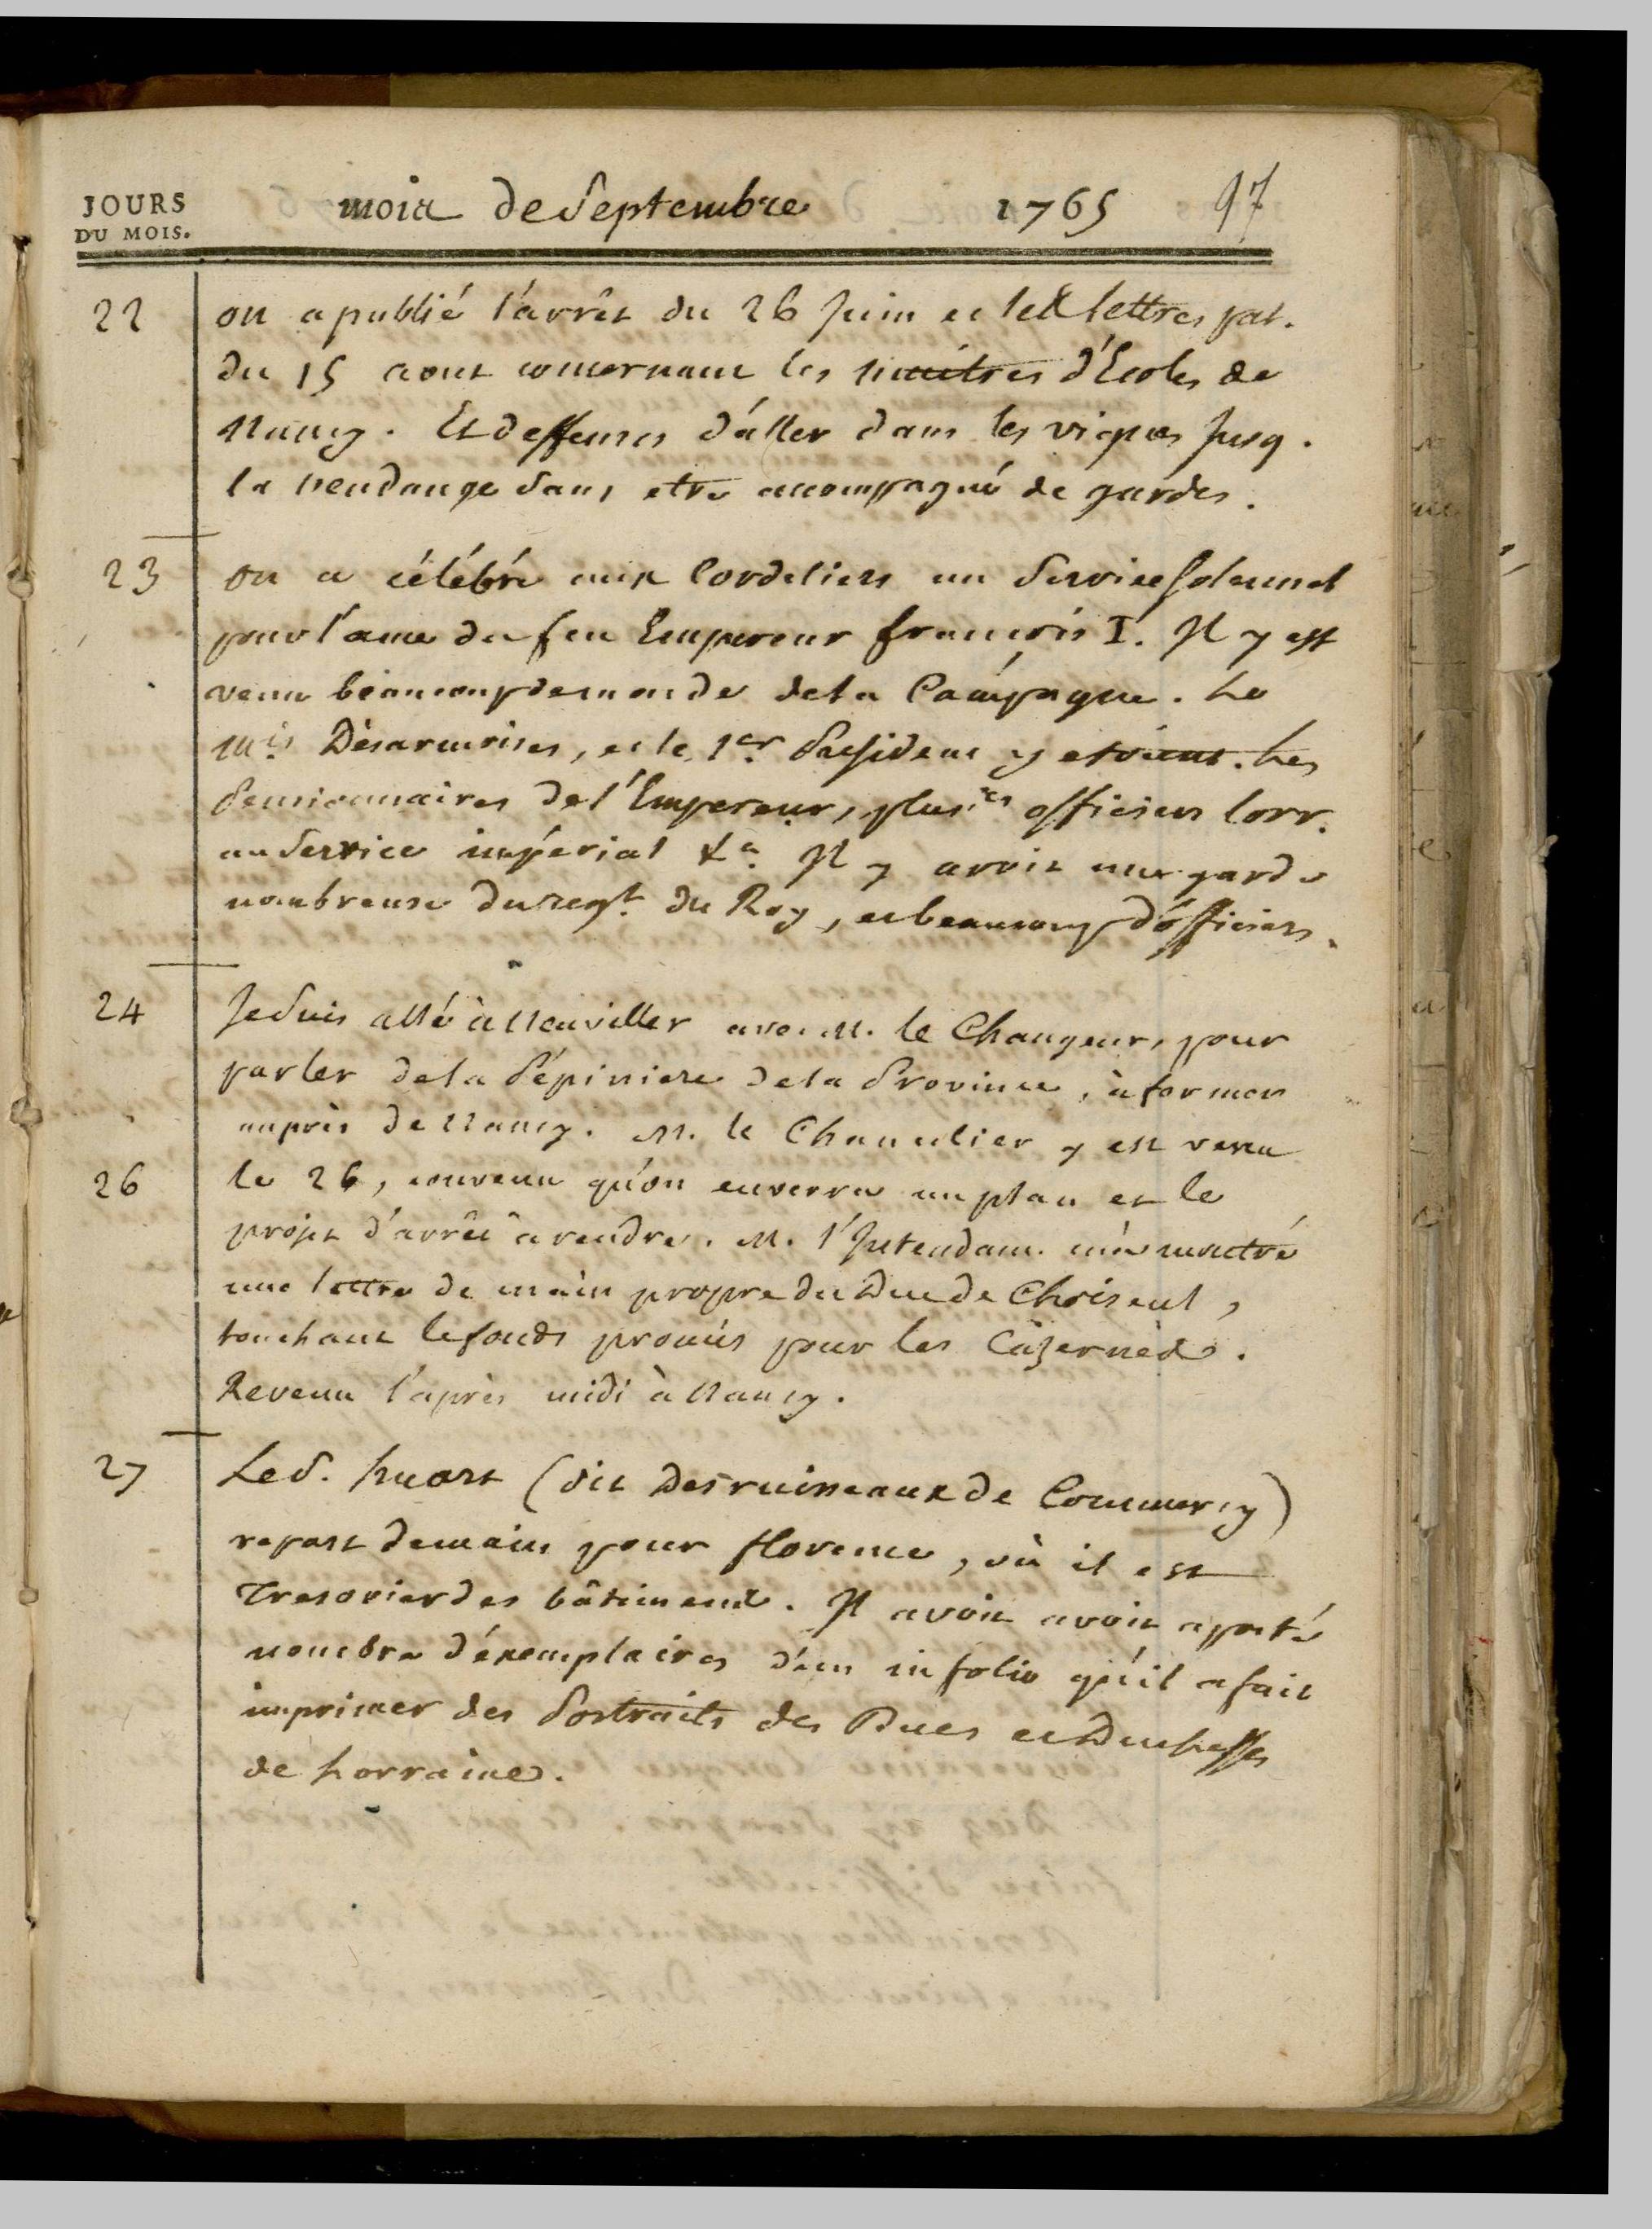 JOURS
DU MOIS.
mois de Septembre 1765 97
22 on a publié l'arrêt du 26 Juin et les lettres pat.
du 15 aout concernant les maitres d'Ecoles de
Nancy. Et deffenses d'aller dans les vignes Jusq.
la vendange sans etre accompagné de gardes.
23 on a célébré aux Cordeliers un Service solemnel
pour l'ame du feu Empereur françois I. Il y est
venu beaucoup de monde de la Campagne. Le
Mis Désarmoises, et le 1er President y etoient. Les
Pensionnaires de l'Empereur, plusrs officiers lorr.
au Service impérial &a. Il y avoit une garde
nombreuse du regt. du Roy, et beaucoup d'officiers.
24 Je suis allé à Neuviller avec M. le Changeur, pour
parler de la Pépiniere de la Province, à former
auprès de Nancy. M. le Chancelier y est venu
26 le 26, convenu qu'on enverra un plan et le
projet d'arrêt à rendre. M. l'Intendant m'a montré
une lettre de main propre du Duc de Choiseul,
touchant le fonds promis pour les Cazernes.
Revenu l'après midi à Nancy.
27 Le S. huart (dit Desruisseaux de Commercy)
repart demain pour florence, où il est
Tresorier des bâtimens. Il avoit avoit aporté
nombre d'éxemplaires d'un in folio qu'il a fait
imprimer des Portraits des Ducs et Duchesses
de Lorraine.